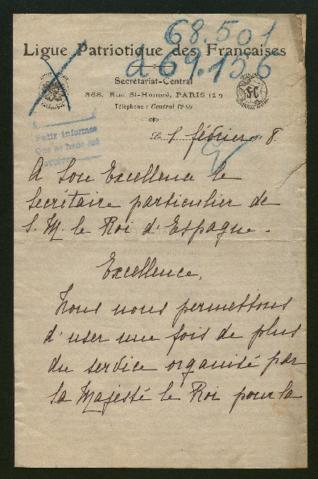 68.501
a 69.156
Ligue Patriotique des Françaises
Secrétariat-Central
368, Rue St-Honoré, PARIS
Téléphone : Central
Pedir informes
que se haga
février 8
A Son Excellence le
Secrétaire particulier de
S. M. le Roi d'Espagne.
Excellence,
Nous nous permettons
d'user une fois de plus
du service organisé par
Sa Majesté le Roi pour la